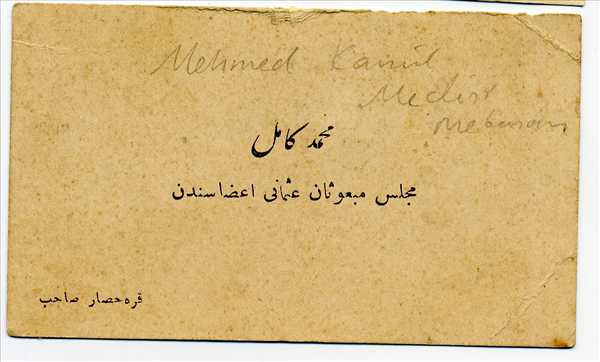 Mehmed Kamil
Meclis
Mebusan
محمد كامل
مجلس مبعوثان عثمانى اعضاسندن
قره حصار صاحب